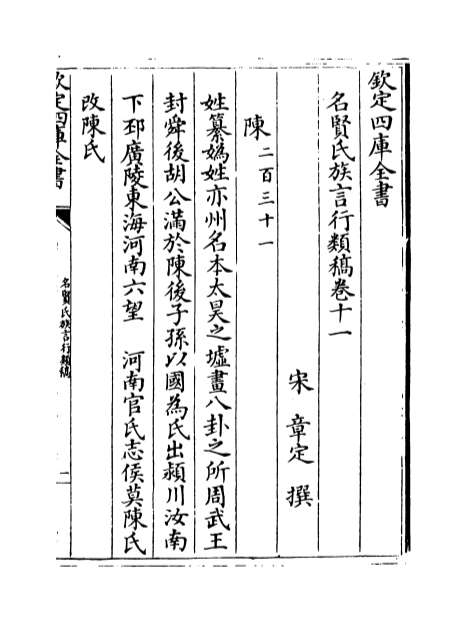 欽定四庫全書
名賢氏族言行類稿卷十一
宋　章定　撰
陳 二百三十一
姓纂媯姓亦州名本太昊之墟畫八卦之所周武王
封舜後胡公滿於陳後子孫以國為氏出潁川汝南
下邳廣陵東海河南六望　河南官氏志侯莫陳氏
改陳氏
欽定四庫全書
名賢氏族言行類稿